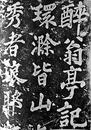 醉翁亭記
環滁皆山
秀者琅